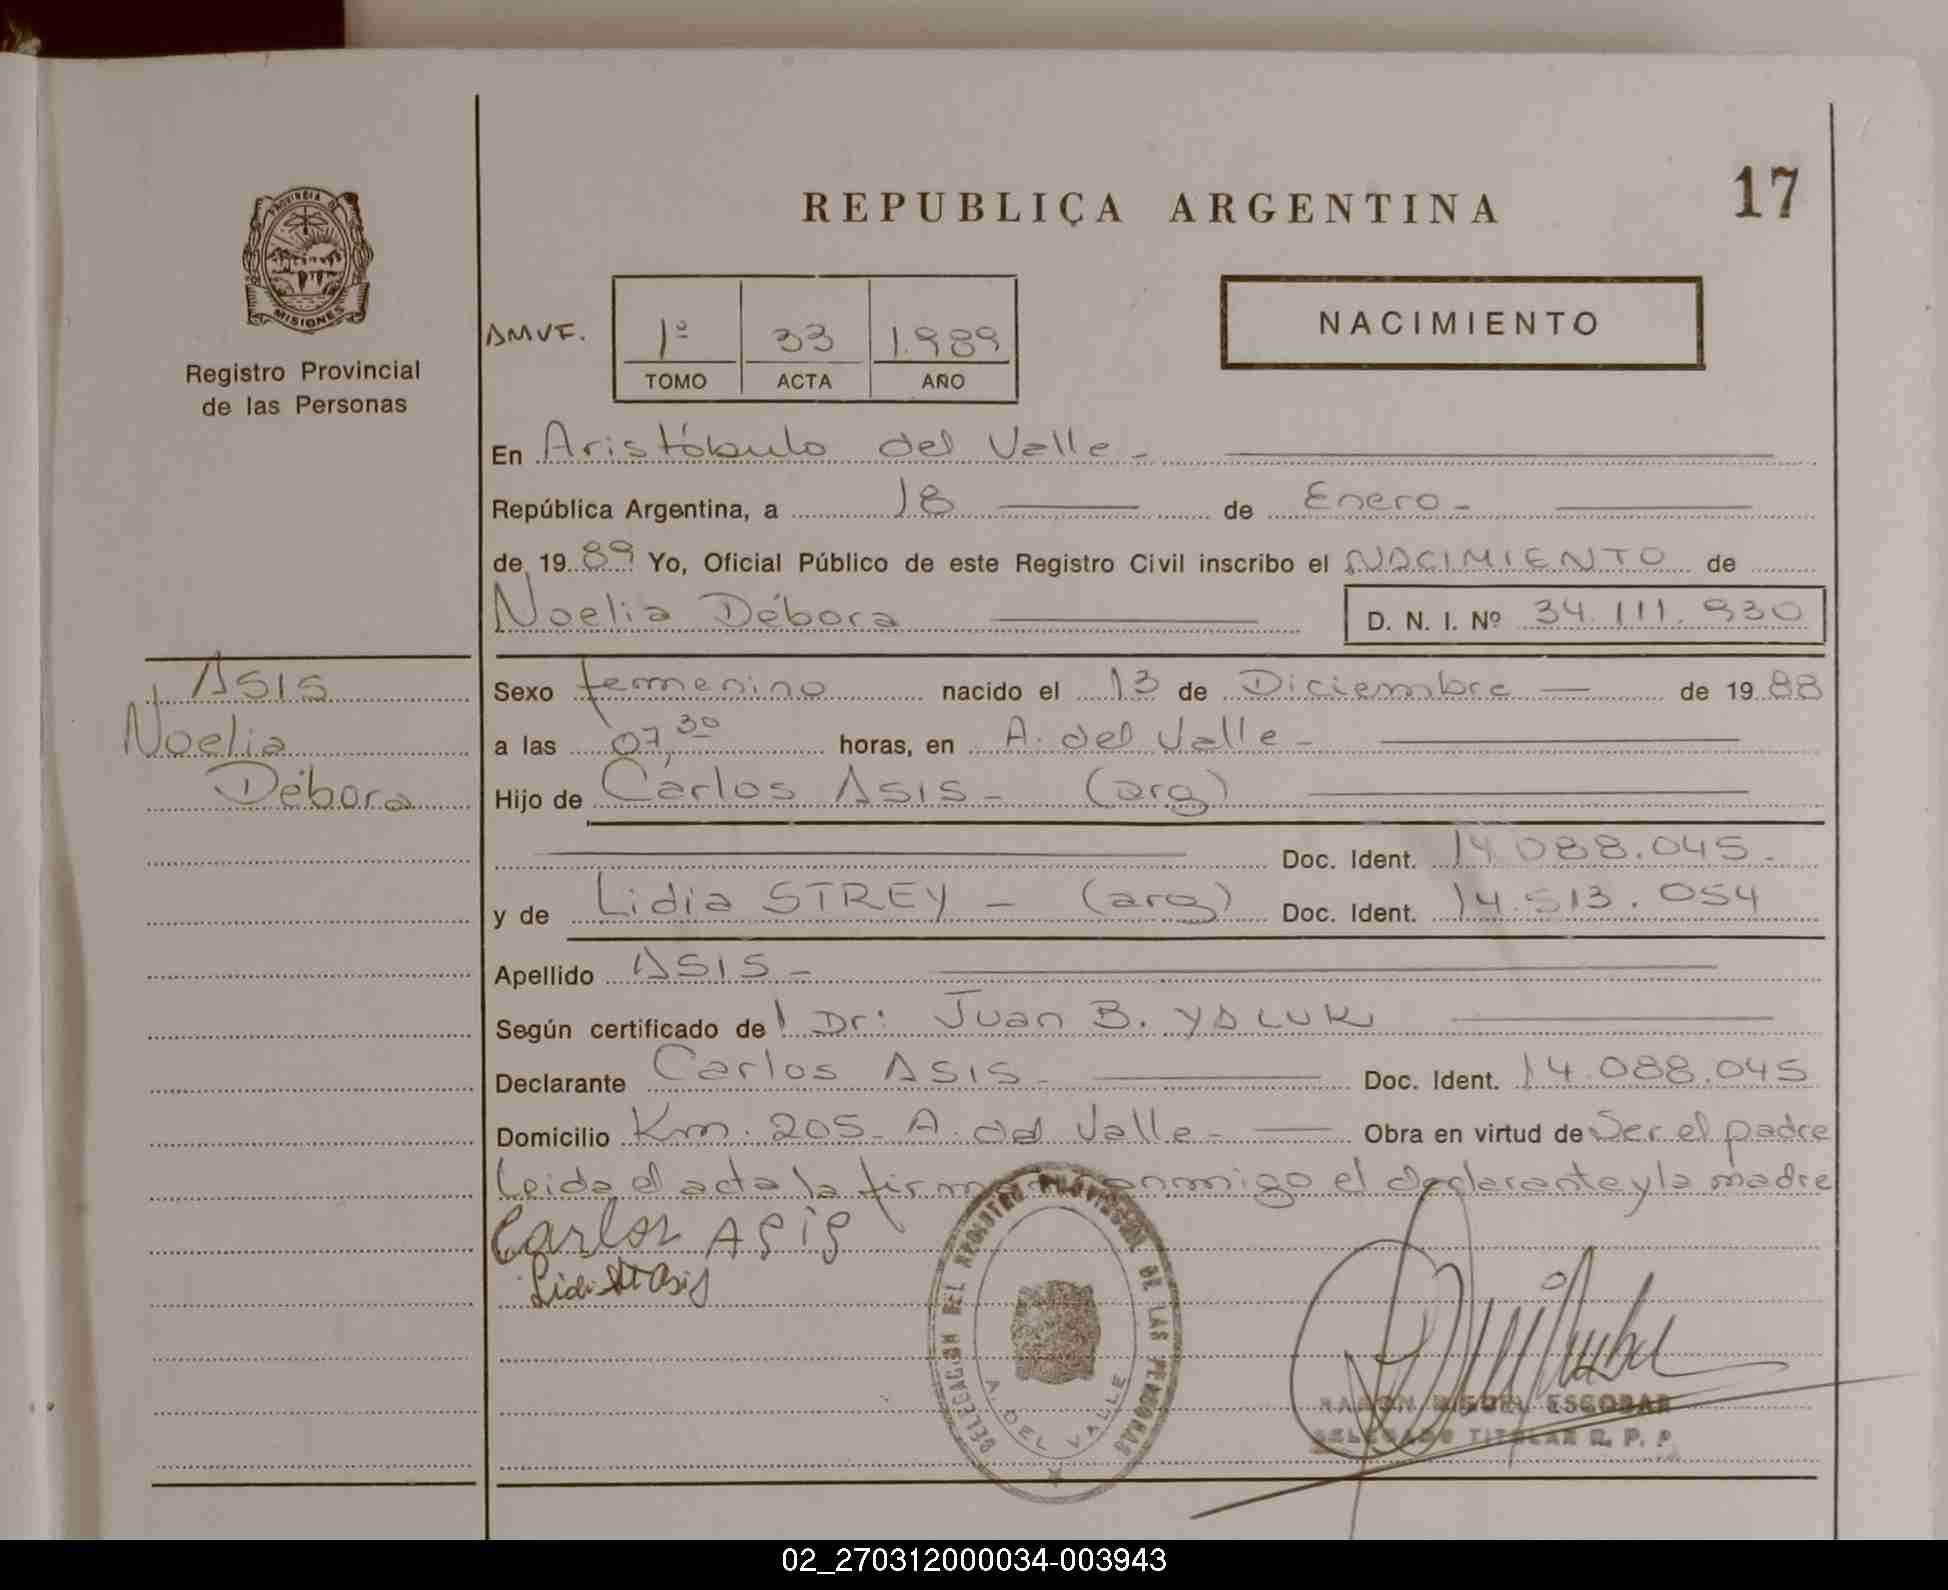 17
REPUBLICA ARGENTINA
PROVINCIA DE
MISIONES
Registro Provincial
de las Personas
NACIMIENTO
AMVF.
1º 33 1.989
TOMO ACTA AÑO
En Aristóbulo del Valle -
República Argentina, a 18 de Enero -
de 19 89 Yo, Oficial Público de este Registro Civil inscribo el NACIMIENTO de
Noelia Débora D. N. I. Nº 34.111.930
ASIS
Noelia
Débora
Sexo femenino nacido el 13 de Diciembre de 19 88
a las 07,30 horas, en A. del Valle -
Hijo de Carlos ASIS - (arg)
Doc. Ident. 14.088.045 -
y de Lidia STREY - (arg) Doc. Ident. 14.513.054
Apellido ASIS -
Según certificado de Dr: Juan B. YALUK
Declarante Carlos ASIS - Doc. Ident. 14.088.045
Domicilio Km. 205 - A. del Valle - Obra en virtud de Ser el padre
Leida el acta la firma conmigo el declarante y la madre
Carlos ASIS
DELEGACION DEL REGISTRO PROVINCIAL DE LAS PERSONAS
A. DEL VALLE
RAMON MIGUEL ESCOBAR
DELEGADO TITULAR R. P. P.
02_270312000034-003943